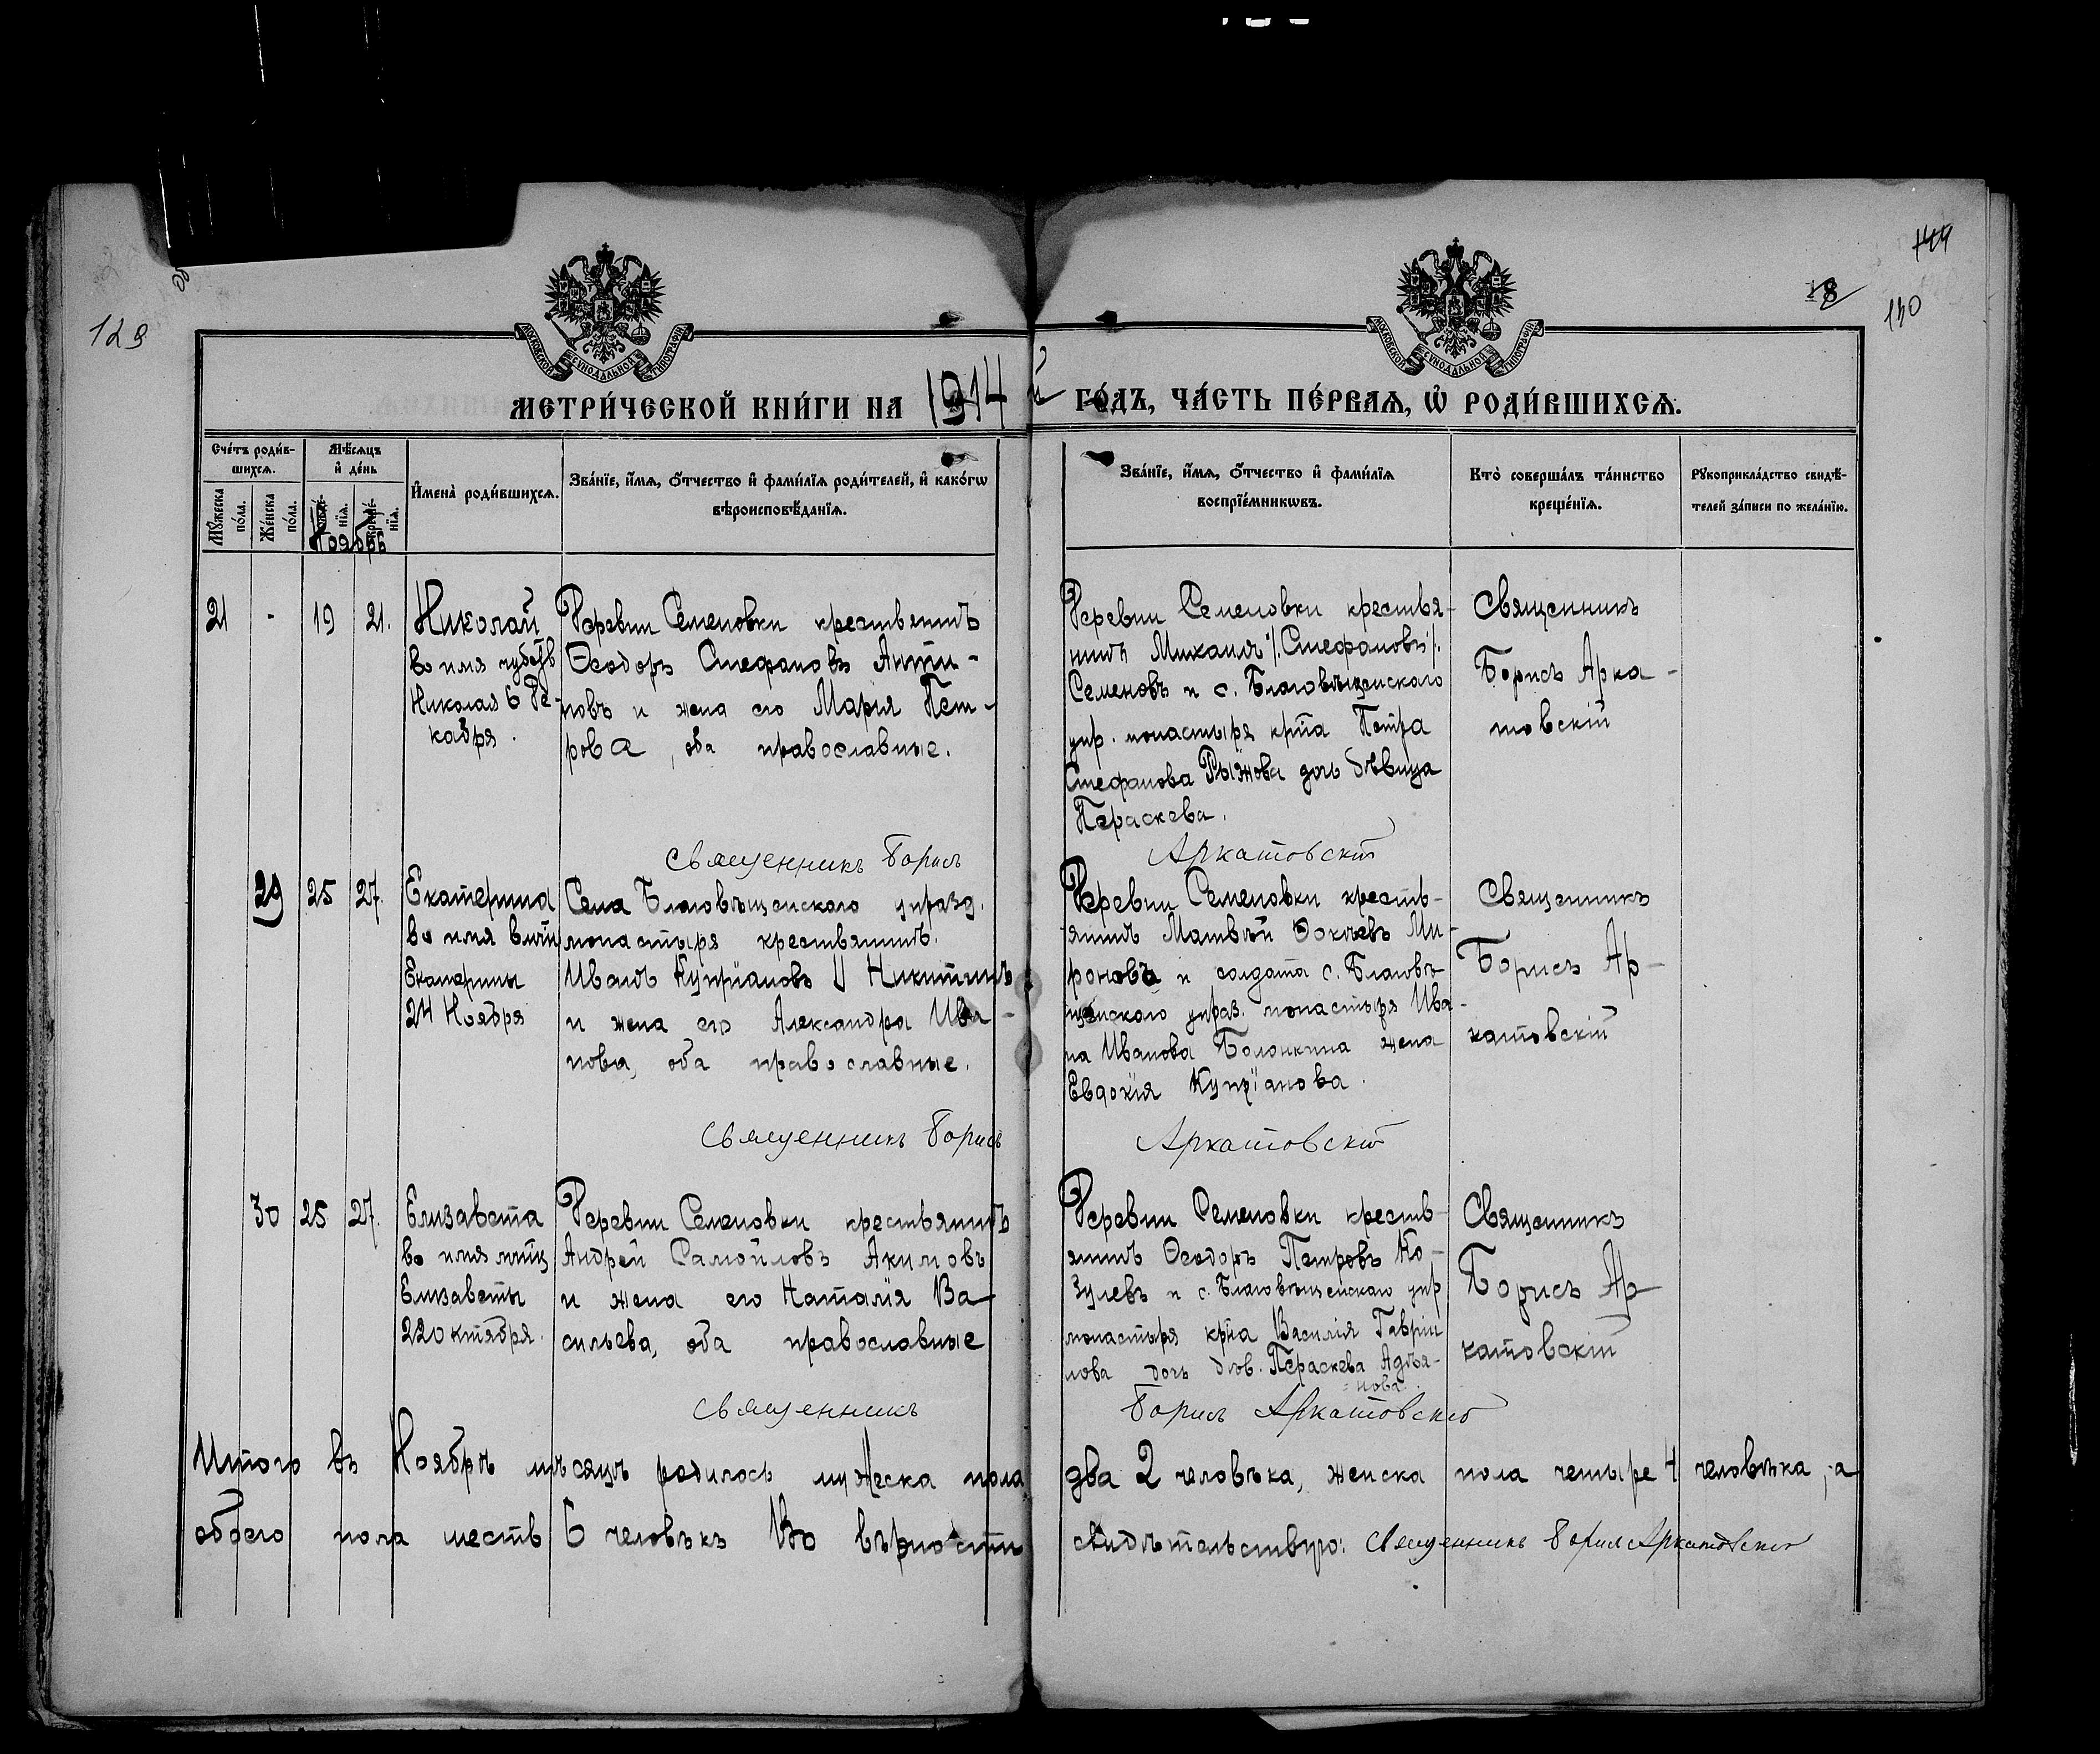 129
144
18
130
МОСКОВСКОЙ СУНОДАЛЬНОЙ ТИПОГРАФІИ
МОСКОВСКОЙ СУНОДАЛЬНОЙ ТИПОГРАФІИ
МЕТРИ́ЧЕСКОЙ КНИ́ГИ НА 1914 й ГО́ДЪ, ЧА́СТЬ ПЕ́РВАѦ, Ѡ҆ РОДИ́ВШИХСѦ.
Сче́тъ роди́в-
шихсѧ.
Мꙋ́жеска по́ла.
Же́нска по́ла.
Мѣ́сѧцъ
и҆ де́нь
Ноябрь
И҆мена̀ роди́вшихсѧ.
Зва́нїе, и҆́мѧ, ѻ҆́тчество и҆ фами́лїѧ роди́телей, и҆ како́гѡ
вѣроисповѣ́данїѧ.
Зва́нїе, и҆́мѧ, ѻ҆́тчество и҆ фами́лїѧ
воспрїе́мникѡвъ.
Кто̀ соверша́лъ та́инство
креще́нїѧ.
Рꙋкоприкла́дство свидѣ́-
телей за́писи по жела́нїю.
21 - 19 21.
Николай
во имя
Николая 6 Де-
кабря.
Деревни Семеновки крестьянинъ
Ѳеодоръ Стефановъ Анти-
повъ и жена его Марія Пет-
рова, оба православные.
Деревни Семеновки крестья-
нинъ Михаилъ /.Стефановъ/.
Семеновъ и с. Благовѣщенскаго
упр. монастыря крта Петра
Стефанова Рыжова дочь дѣвица
Параскева.
Священникъ
Борисъ Арка-
товскій
Священникъ Борисъ Аркатовскій
29 25 27.
Екатерина
во имя вмчц
Екатерины
24 Ноября
Села Благовѣщенскаго упразд.
монастыря крестьянинъ.
Иванъ Купріановъ Никитинъ
и жена его Александра Ива-
нова, оба православные.
Деревни Семеновки кресть-
янинъ Матвѣй Ми-
ронова и солдата с. Благовѣ
щенскаго упраз. монастыря Ива-
на Иванова Болонкина жена
Евдокія Купріанова.
Священникъ
Борисъ Ар-
катовскій
Священникъ Борисъ Аркатовскій
30 25 27.
Елизавета
во имя мчтц
Елизаветы
22 октября.
Деревни Семеновки крестьянинъ
Андрей Самойловъ Акимовъ
и жена его Наталія Ва-
сильева, оба православные
Деревни Семеновки кресть-
янинъ Ѳеодоръ Петровъ Ко-
зулевъ и с. Благовѣщенскаго упр
монастыря крта Василія Гаврии
лова дочь дѣв. Параскева
Священникъ
Борисъ Ар-
катовскій
Священникъ Борисъ Аркатовскій
Итого въ Ноябрѣ мѣсяцѣ родилось мужеска пола два 2 человѣка, женска пола четыре 4 человѣка, а
обоего пола шесть 6 человѣкъ Во вѣрности свидѣтельствую: Священникъ Борисъ Аркатовскій